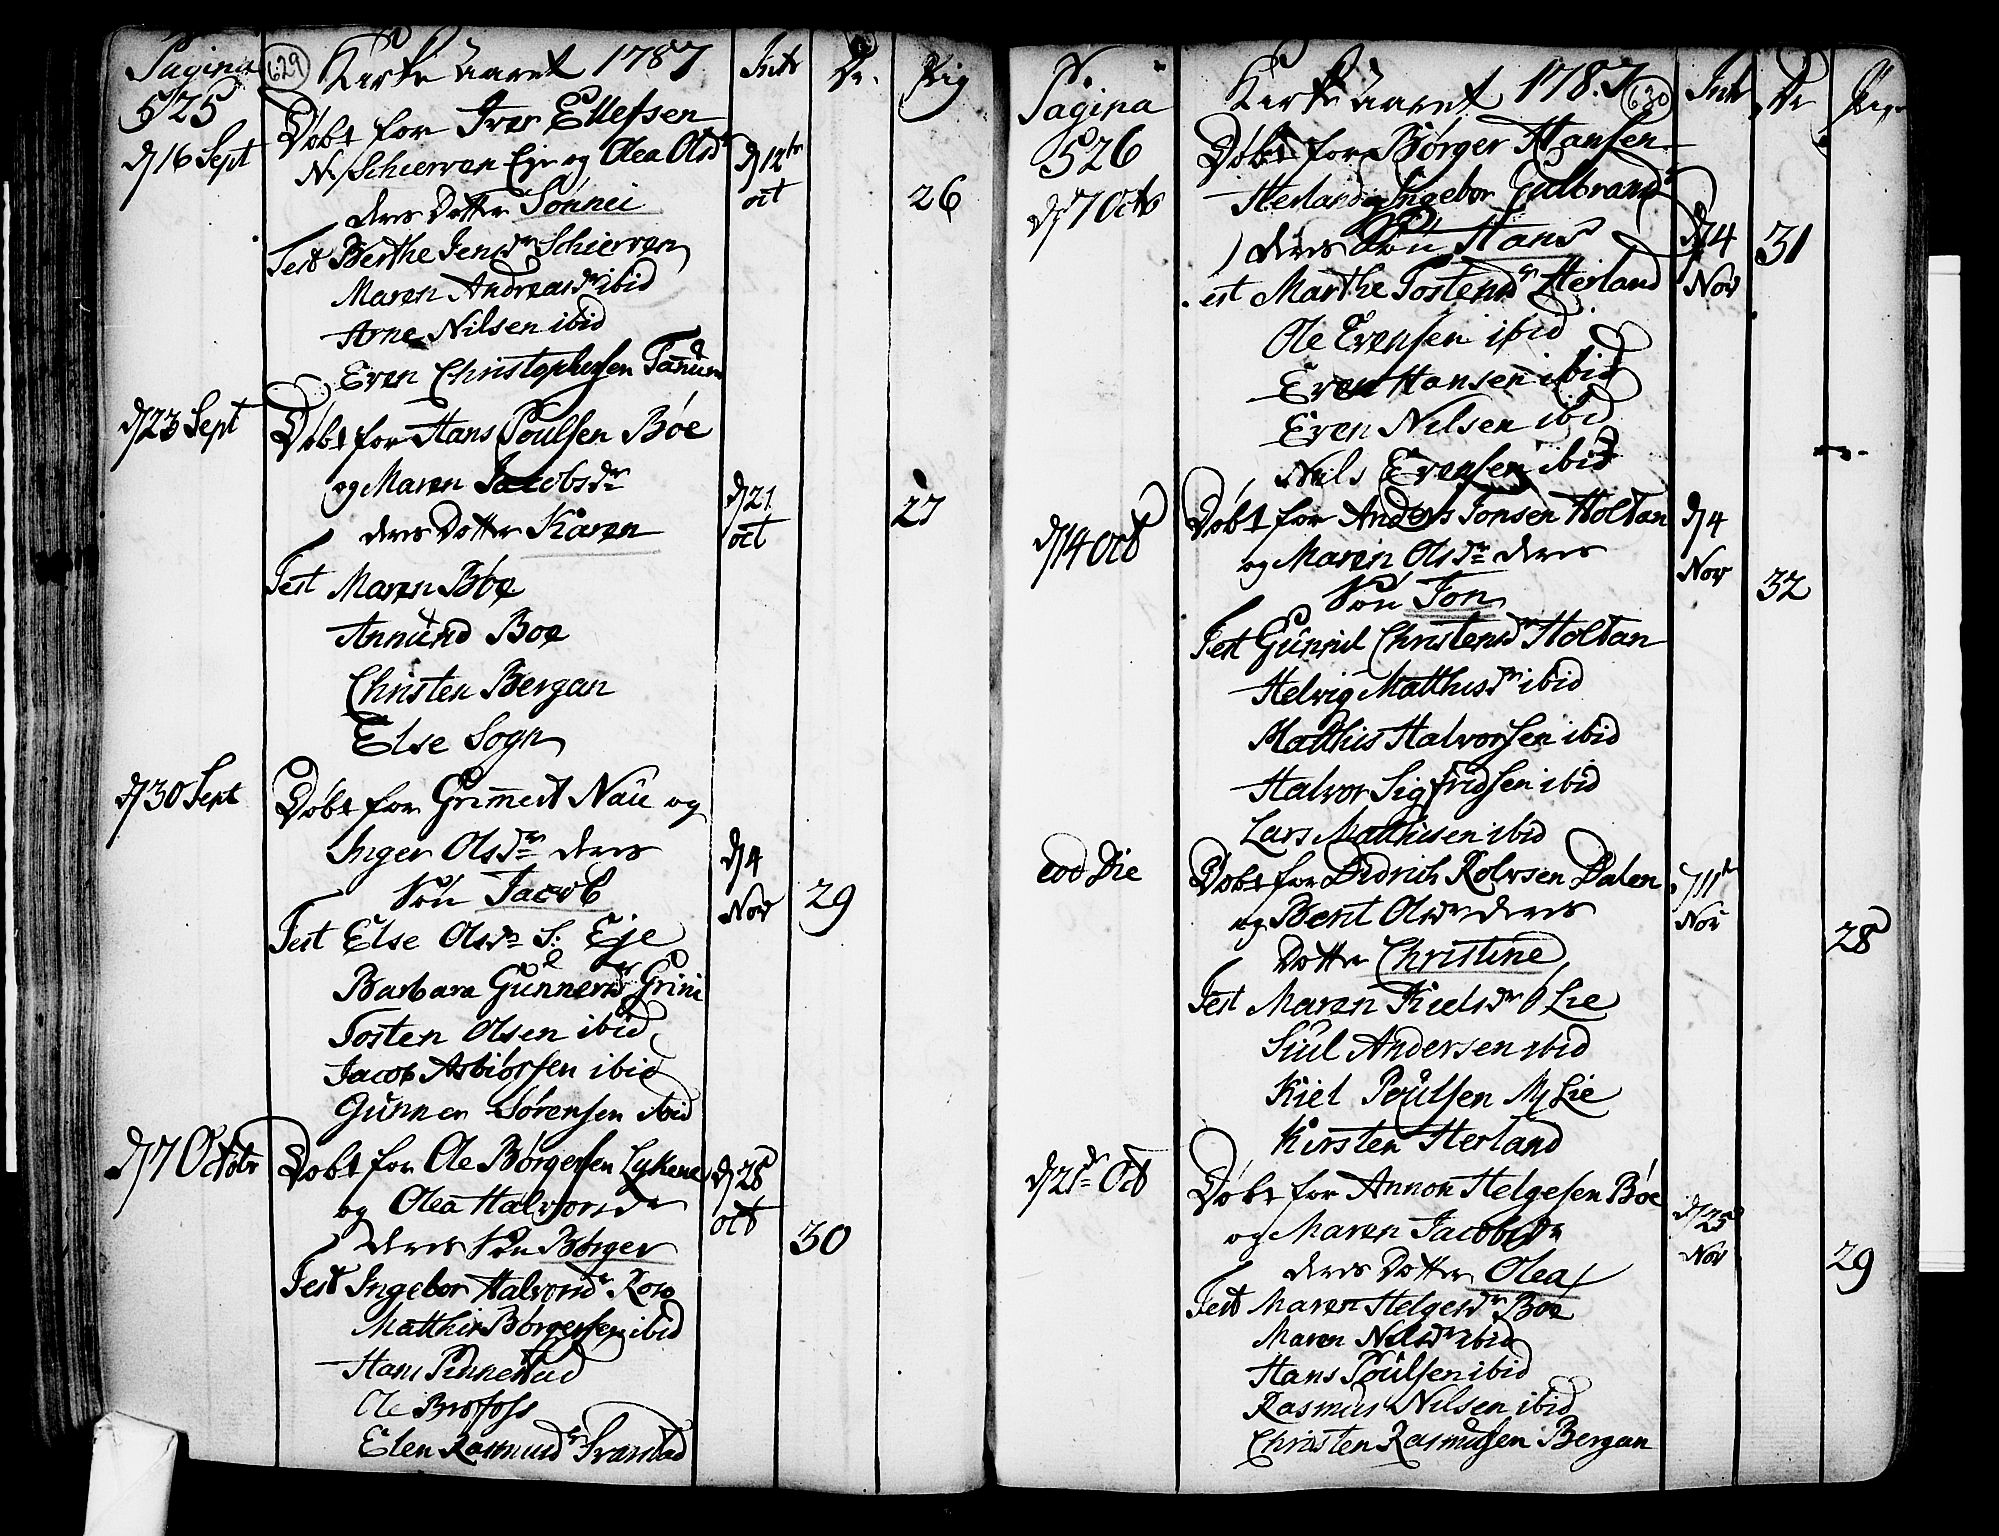 Pagina 629 Kirke Aaret 1787 Intr Dr. Pig
525
d 16 Sept Døbt for Iver Ellefsen
N. Schierven Eje og Olea Olsdr d 12te
oct
deres Dotter Sønnei 26
Test Berthe Jensdr Schierven
Maren Andreasdr ibid
Arne Nilsen ibid
Even Christophersen Tanum
d 23 Sept Døbt for Hans Poulsen Bøe
og Maren Jacobsdr d 21
oct
deres Dotter Karen 27
Test Maren Bøe
Annund Boe
Christen Bergan
Else Sogn
d 30 Sept Døbt for Grimert Nau og
Inger Olsdr deres d 4
Nov
Søn Jacob 29
Test Else Olsdr S: Eje
Barbara Gunnersdr Grini
Tosten Olsen ibid
Jacob Asbiørsen ibid
Gunner Sørensen ibid
d 7 Octobr Døbt for Ole Børgersen Lykene d 28
oct
og Olea Halvorsdr
deres Søn Børger 30
Test Ingebor Halvorsdr
Matthis Børgersen ibid
Hans Pennestad
Ole Brofoss
Elen Rasmusdr Svarstad
Pagina Kirke Aaret 1787 630 Intr Dr Pige
526 Døbt for Børger Hansen
d 7 Octb Herland og Ingebor Gulbrandsdr
deres Søn Hans d 4 31
Nov
Test Marthe Tostensdr Herland
Ole Evensen ibid
Even Hansen ibid
Even Nilsen ibid
Nils Evensen ibid
d 14 Oct Døbt for Anders Jonsen Holtan d 4
Nov
og Maren Olsdr deres
Søn Jon 32
Test Gunnil Christensdr Holtan
Helvig Matthisdr ibid
Matthis Halvorsen ibid
Halvor Sigfridsen ibid
Lars Matthisen ibid
eod Die Døbt for Didrich Rolvsen Dalen d 11te
Nov
og Berit Olsdr deres
Dotter Christine 28
Test Maren Kielsdr Ø Lie
Siul Andersen ibid
Kiel Poulsen M Lie
Kirsten Herland
d 21de Oct Døbt for Annon Helgesen Bøe
og Maren Jacobsdr d 25
Nov
deres Dotter Olea 29
Test Maren Helgesdr Boe
Maren Nilsdr ibid
Hans Poulsen ibid
Rasmus Nilsen ibid
Christen Rasmusen Bergan